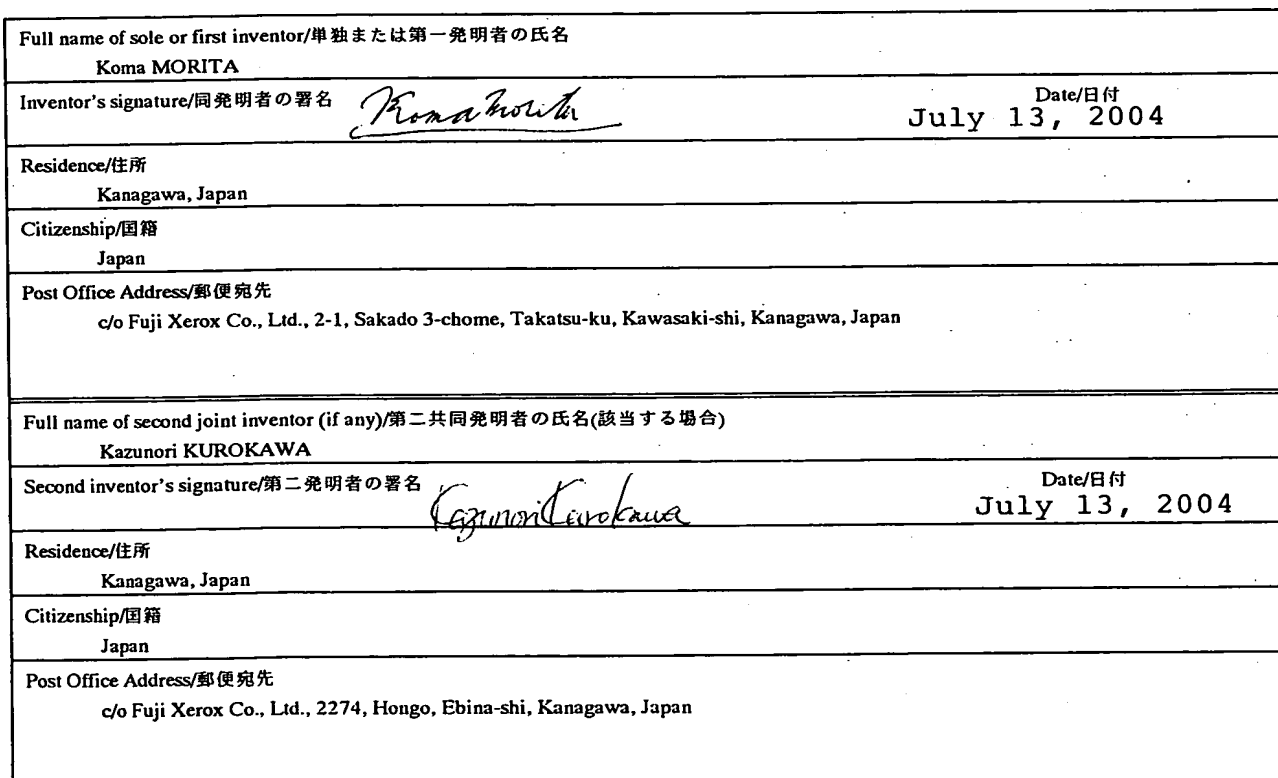 Full name of sole or first inventor/単独または第一発明者の氏名
Koma MORITA
Inventor's signature/同発明者の署名 Koma Morita Date/日付
July 13, 2004
Residence/住所
Kanagawa, Japan
Citizenship/国籍
Japan
Post Office Address/郵便宛先
c/o Fuji Xerox Co., Ltd., 2-1, Sakado 3-chome, Takatsu-ku, Kawasaki-shi, Kanagawa, Japan
Full name of second joint inventor (if any)/第二共同発明者の氏名(該当する場合)
Kazunori KUROKAWA
Second inventor's signature/第二発明者の署名 Kazunori Kurokawa Date/日付
July 13, 2004
Residence/住所
Kanagawa, Japan
Citizenship/国籍
Japan
Post Office Address/郵便宛先
c/o Fuji Xerox Co., Ltd., 2274, Hongo, Ebina-shi, Kanagawa, Japan